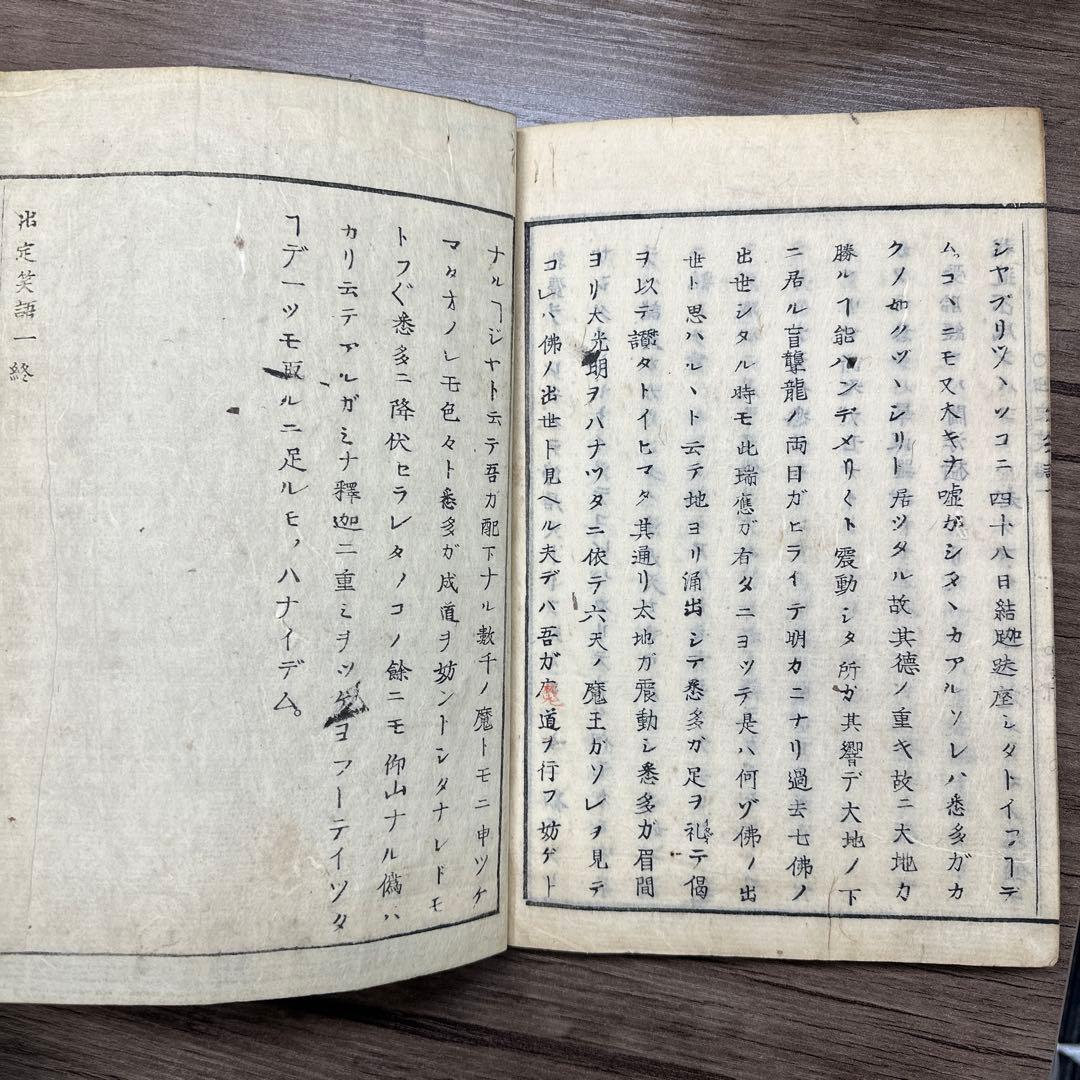 シヤブリツヽソコニ四十八日結跏趺座シタトイフヿデ
ムッコヽニモ又大キナ嘘ガシタヽカアルソレハ悉多ガカ
クノ如クヅヽシリト居ツタル故其徳ノ重キ故ニ大地カ
勝ルヿ能ハンデメリ〱ト震動シタ所ガ其響デ大地ノ下
ニ居ル盲聾龍ノ両目ガヒライテ明カニナリ過去七佛ノ
出世シタル時モ此瑞應ガ有タニヨツテ是ハ何ゾ佛ノ出
世ト思ハルヽト云テ地ヨリ涌出シテ悉多ガ足ヲ礼テ偈
ヲ以テ讃タトイヒマタ其通リ太地ガ震動シ悉多ガ眉間
ヨリ大光明ヲハナツタニ依テ六天ノ魔王ガソレヲ見テ
コレハ佛ノ出世ト見ヘル夫デハ吾ガ魔道ヲ行フ妨ゲト
ナルヿジヤト云テ吾カ配下ナル數千ノ魔トモニ申ツケ
マタオノレモ色々ト悉多ガ成道ヲ妨ントシタナレドモ
トフ〲悉多ニ降伏セラレタノコノ餘ニモ仰山ナル偽ハ
カリ云テアルガミナ釋迦ニ重ミヲツケヨフーテイツタ
ヿデーツモ取ルニ足ルモノハナイデム。
出定笑語一終